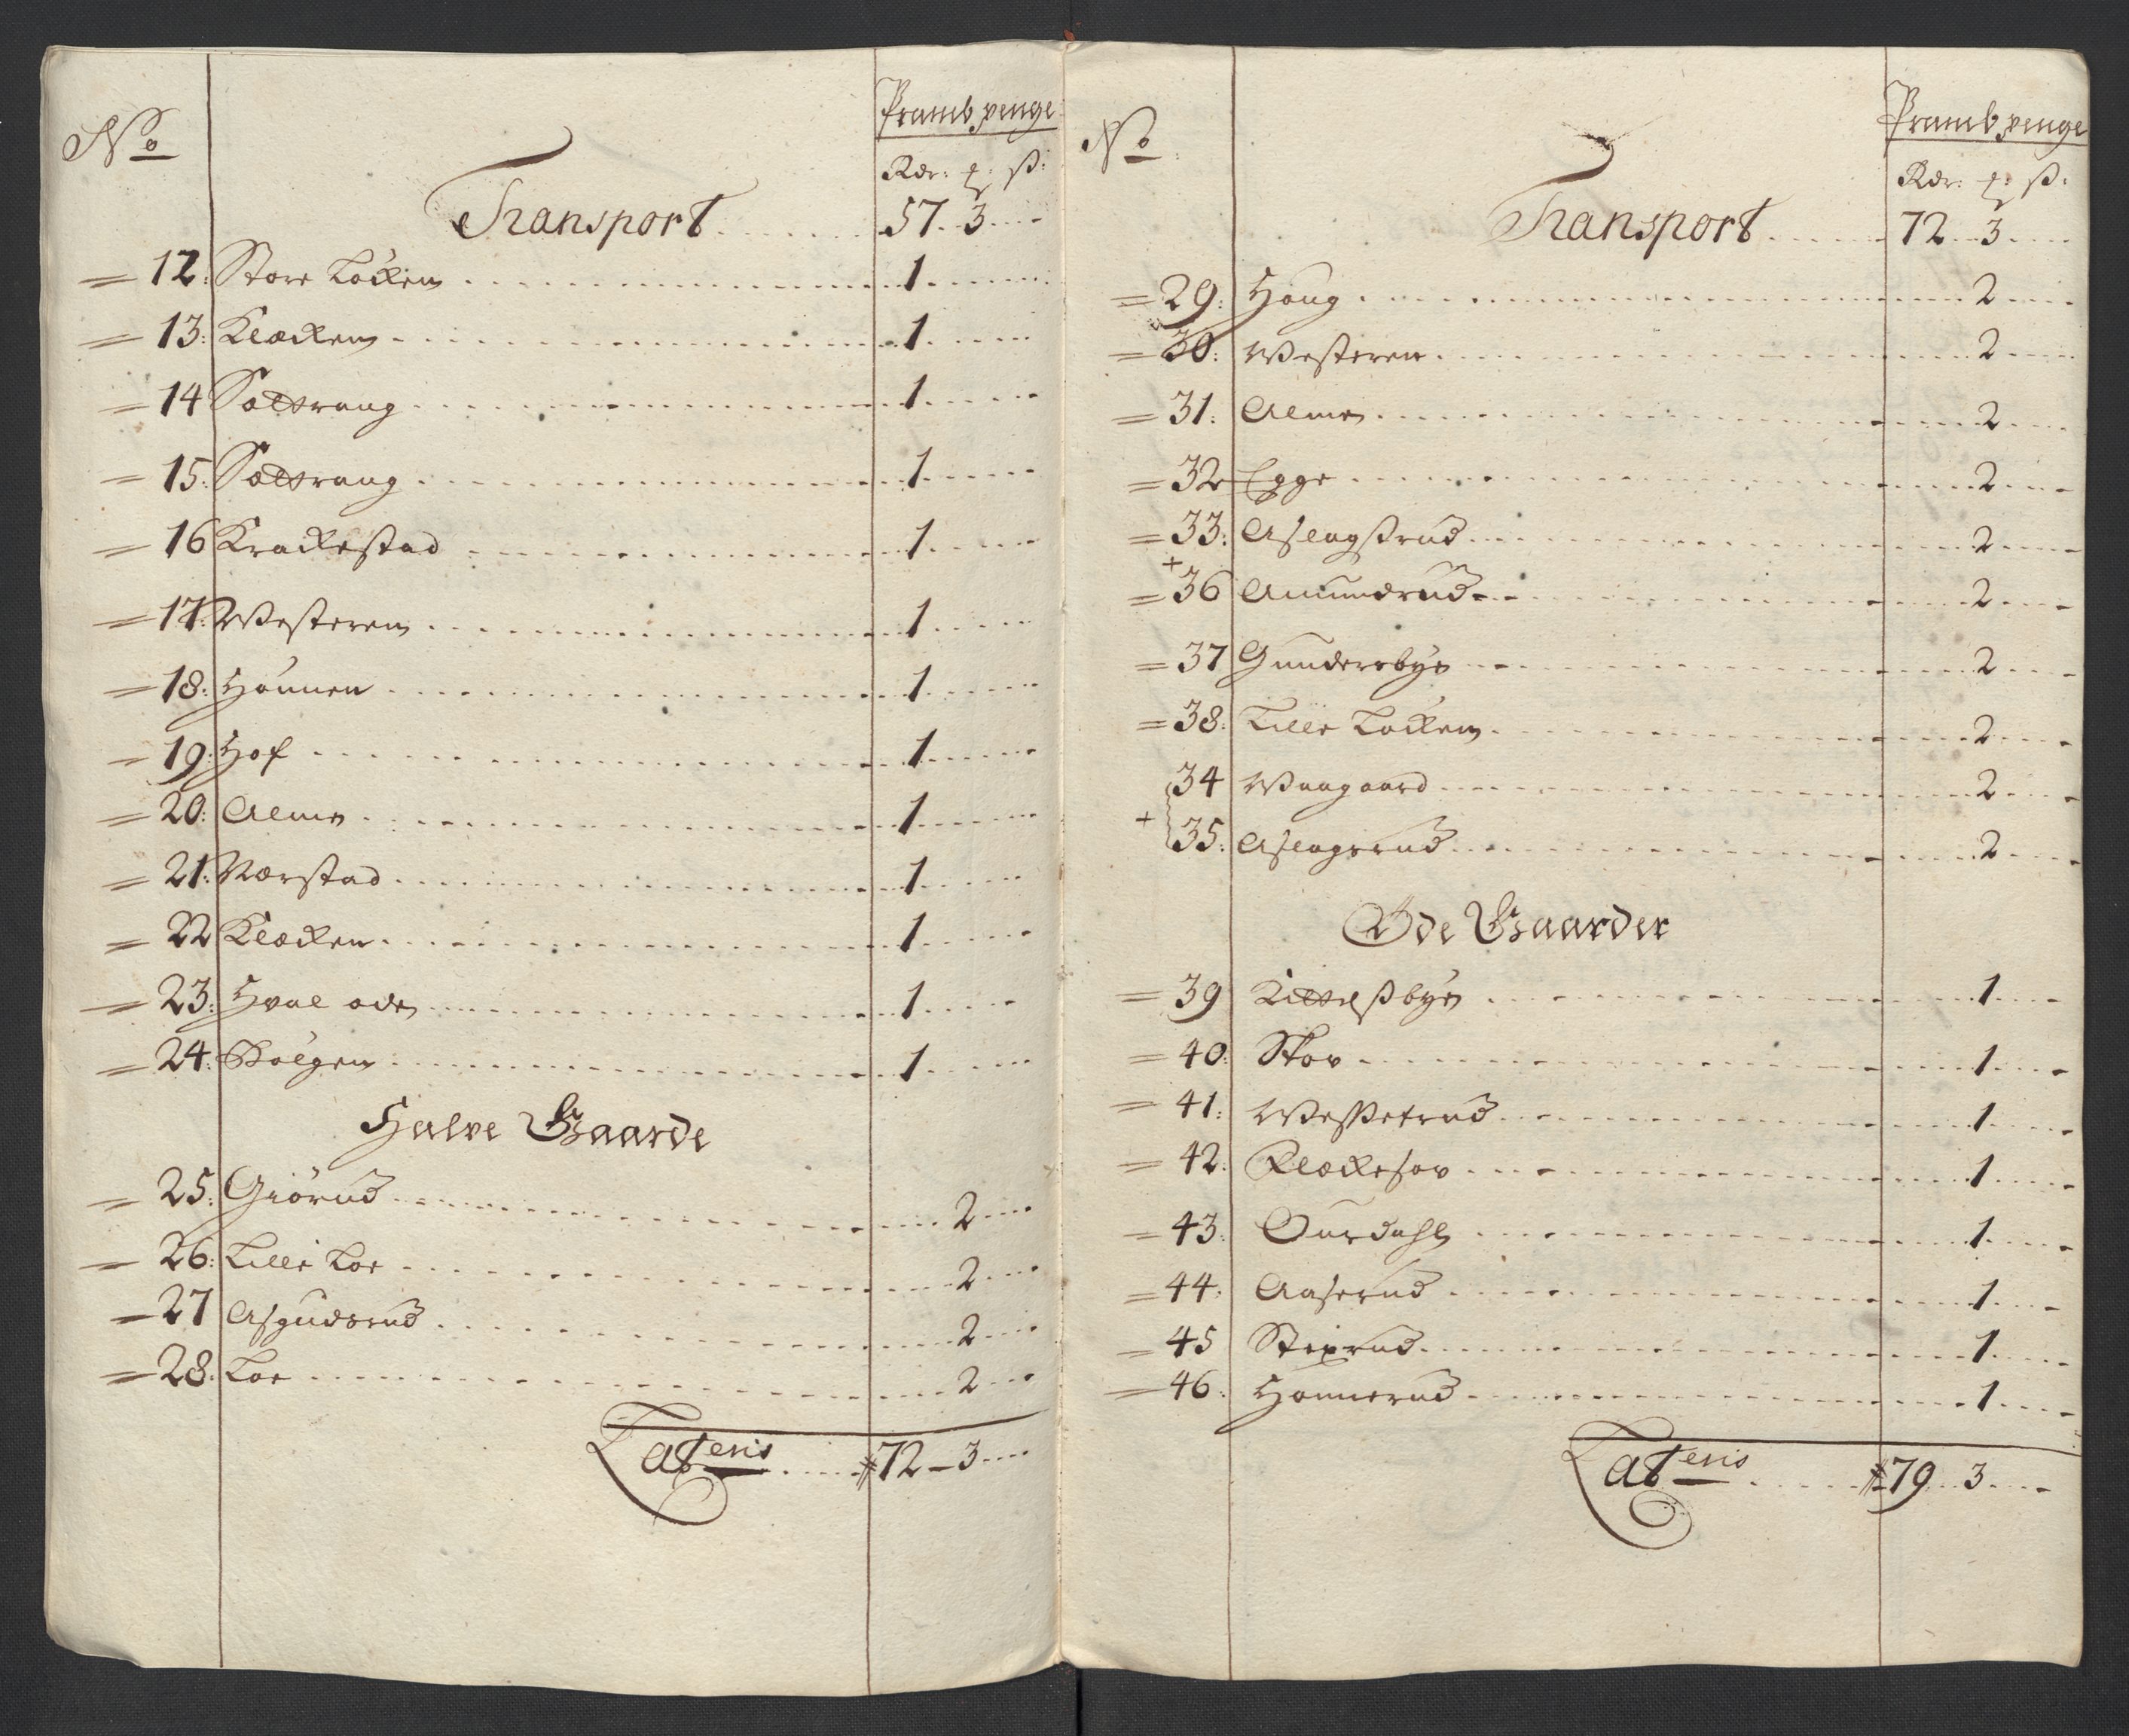 No
Pramb penge
Rdr: ꝗ: ß:
Transport 57 3
= 12: Store Løcken 1
= 13: Klæcken 1
= 14 Sættrang 1
= 15: Sættrang 1
= 16 Krackestad 1
= 17: Westeren 1
= 18: Hønnen 1
= 19: Hof 1
= 20: Alme 1
= 21: Nærstad 1
= 22 Klæcken 1
= 23: Hval øde 1
= 24: Bølgen 1
Halve Gaarde
= 25: Giørud 2
= 26: Lille Loe 2
= 27 Asgudsrud 2
= 28: Loe 2
Lateris 72 - 3
No
Pramb penge
Rdr: ꝗ: ß:
Transport 72 3
= 29: Houg 2
= 30: Westeren 2
= 31: Alme 2
= 32 Egge 2
= 33: Aslagßrud 2
+
= 36 Amundrud 2
= 37 Gundersbye 2
= 38: Lille Løcken 2
34 Waagaard 2
+ 35: Aslagsrud 2
Øde Gaarder
= 39 Kittelßbye 1
= 40: Skov 1
= 41: Wesßetrud 1
= 42: Klæckesøv 1
= 43: Ourdahl 1
= 44: Aaserud 1
= 45 Stixrud 1
= 46: Honnerud 1
Lateris 79 3